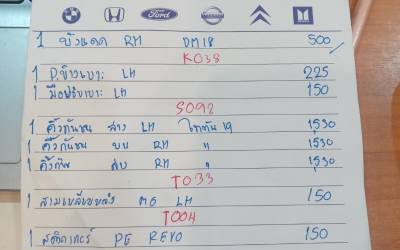 Ford
1 บังแดด RH DM18 500
KO38
1 ป.ข้างเบาะ LH 225
1 มือปรับเบาะ LH 150
SO92
1 คิ้วกันชน ล่าง LH ไททัน 19 1530
1 คิ้วกันชน บน RH " 1530
1 คิ้วกัน ล่าง RH " 1530
TO33
1 สามเหลี่ยม MG LH 150
TOO4
1 สติกเกอร์ PE REVO 150